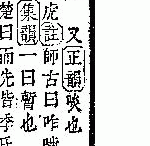 又正韻啖也
虎註師古曰咋
集韻一曰暫也
楚曰而先皆季氏